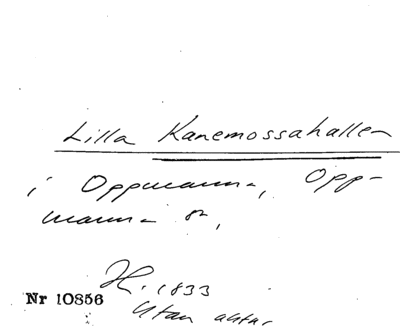 Lilla Kanemossahallen
i Oppmanna, Opp-
manna sn,
H. 1833
Nr 10856
Utan aktar